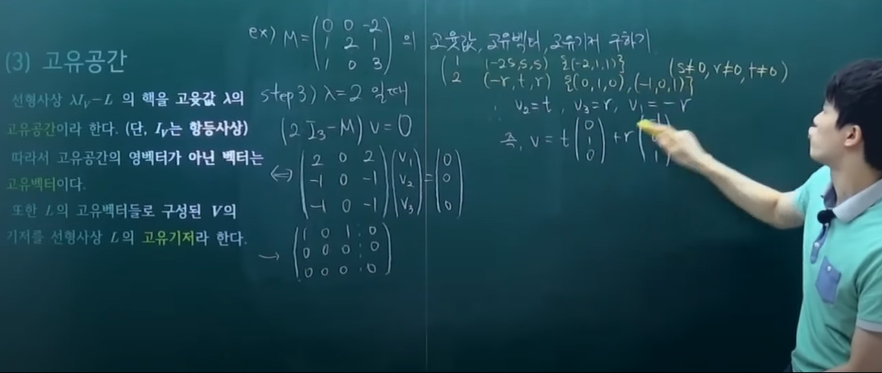 (3) 고유공간
선형사상 λI_V-L 의 핵을 고윳값 λ의
고유공간이라 한다. (단, I_V는 항등사상)
따라서 고유공간의 영벡터가 아닌 벡터는
고유벡터이다.
또한 L의 고유벡터들로 구성된 V의
기저를 선형사상 L의 고유기저라 한다.
ex) M = ( 0 0 -2
1 2 1
1 0 3 ) 의 고윳값, 고유벡터, 고유기저 구하기
step3) λ=2 일때
(2I₃-M) v = 0
⇔ ( 2 0 2
-1 0 -1
-1 0 -1 ) ( v₁
v₂
v₃ ) = ( 0
0
0 )
→ ( 1 0 1 : 0
0 0 0 : 0
0 0 0 : 0 )
( 1 (-2s, s, s) {(-2,1,1)}
2 (-r, t, r) {(0,1,0), (-1,0,1)}
(s≠0, r≠0, t≠0)
∴ v₂=t, v₃=r, v₁=-r
즉, v = t ( 0
1
0 ) + r (
1